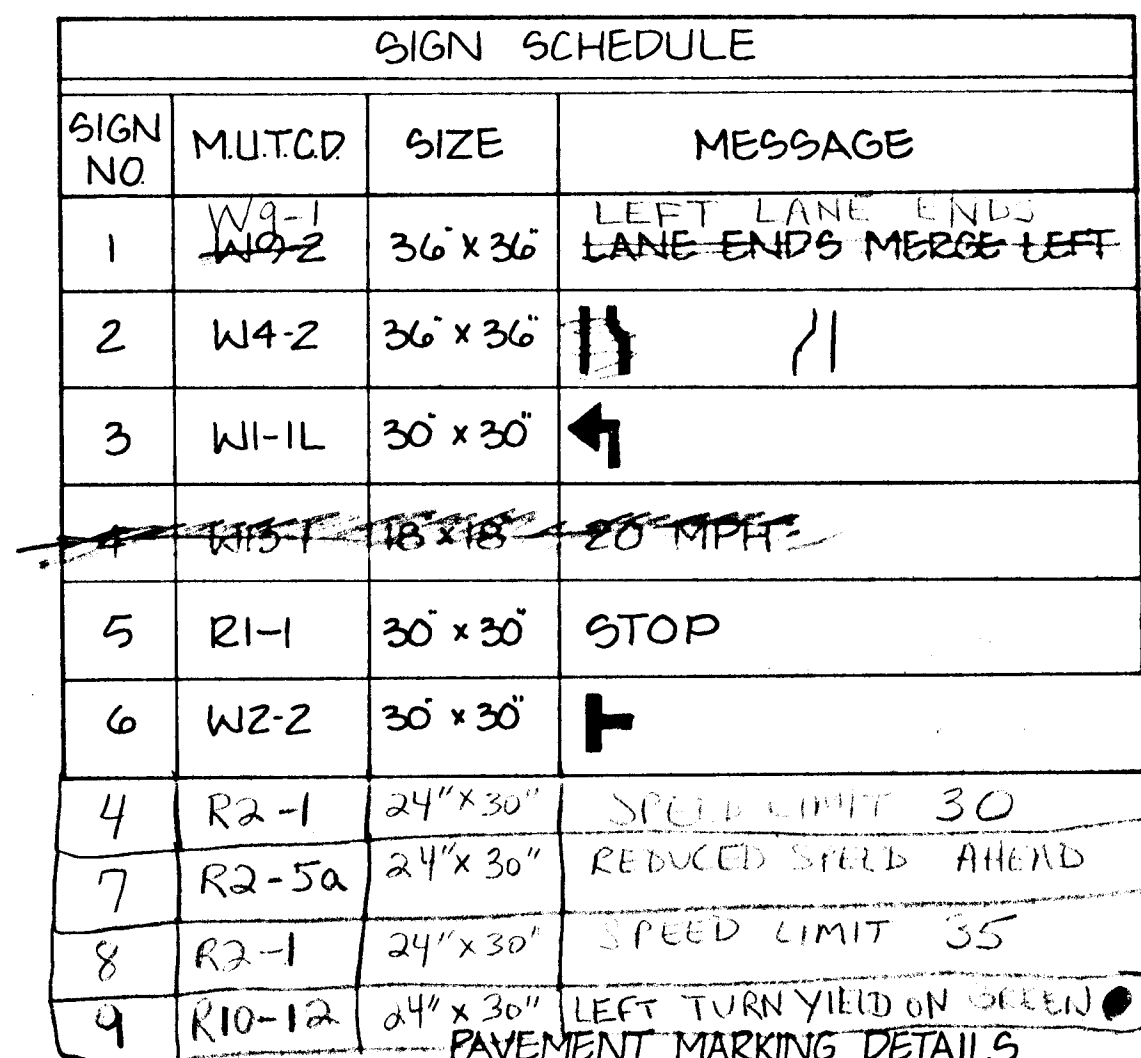 SIGN SCHEDULE
SIGN NO. M.U.T.C.D. SIZE MESSAGE
W9-1 LEFT LANE ENDS
1 W9-2 36" x 36" LANE ENDS MERGE LEFT
2 W4-2 36" x 36"
3 W1-1L 30" x 30"
4 W13-1 18" x 18" 20 MPH
5 R1-1 30" x 30" STOP
6 W2-2 30" x 30"
4 R2-1 24" x 30" SPEED LIMIT 30
7 R2-5a 24" x 30" REDUCED SPEED AHEAD
8 R2-1 24" x 30" SPEED LIMIT 35
9 R10-12 24" x 30" LEFT TURN YIELD ON GREEN
PAVEMENT MARKING DETAILS